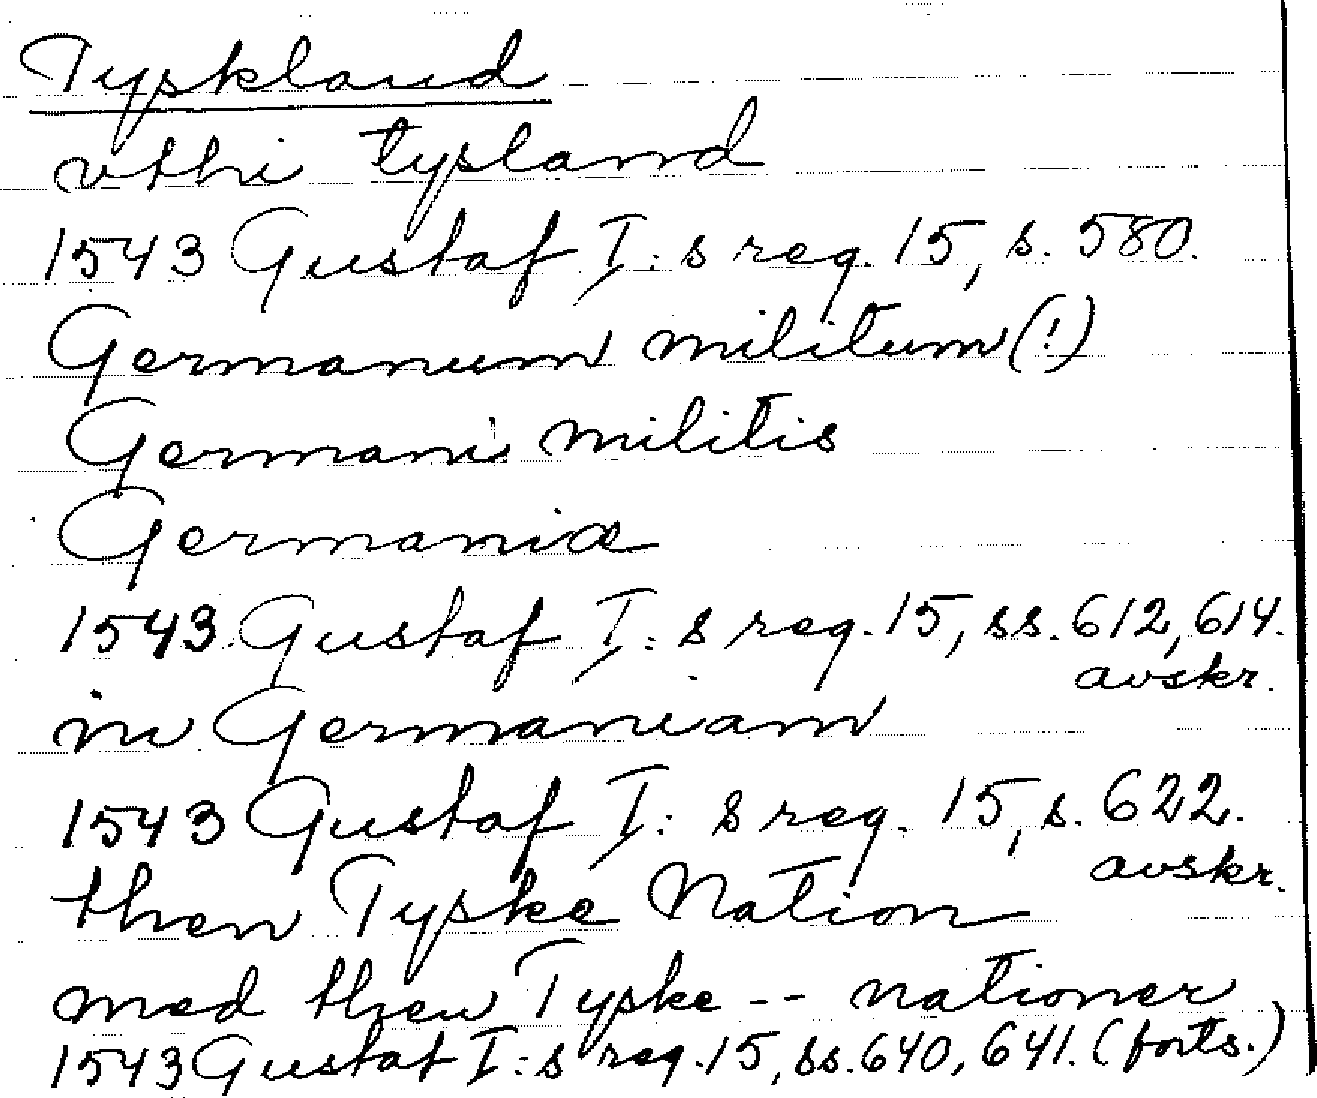 Tyskland
vthi tysland
1543 Gustaf I:s reg. 15, s. 580.
Germanum militum (!)
Germani militis
Germaniæ
1543 Gustaf I:s reg. 15, ss. 612, 614.
avskr.
in Germaniam
1543 Gustaf I:s reg. 15, s. 622.
avskr.
then Tyske Nation
med then Tyske -- nationer
1543 Gustaf I:s reg. 15, ss. 640, 641. (forts.)